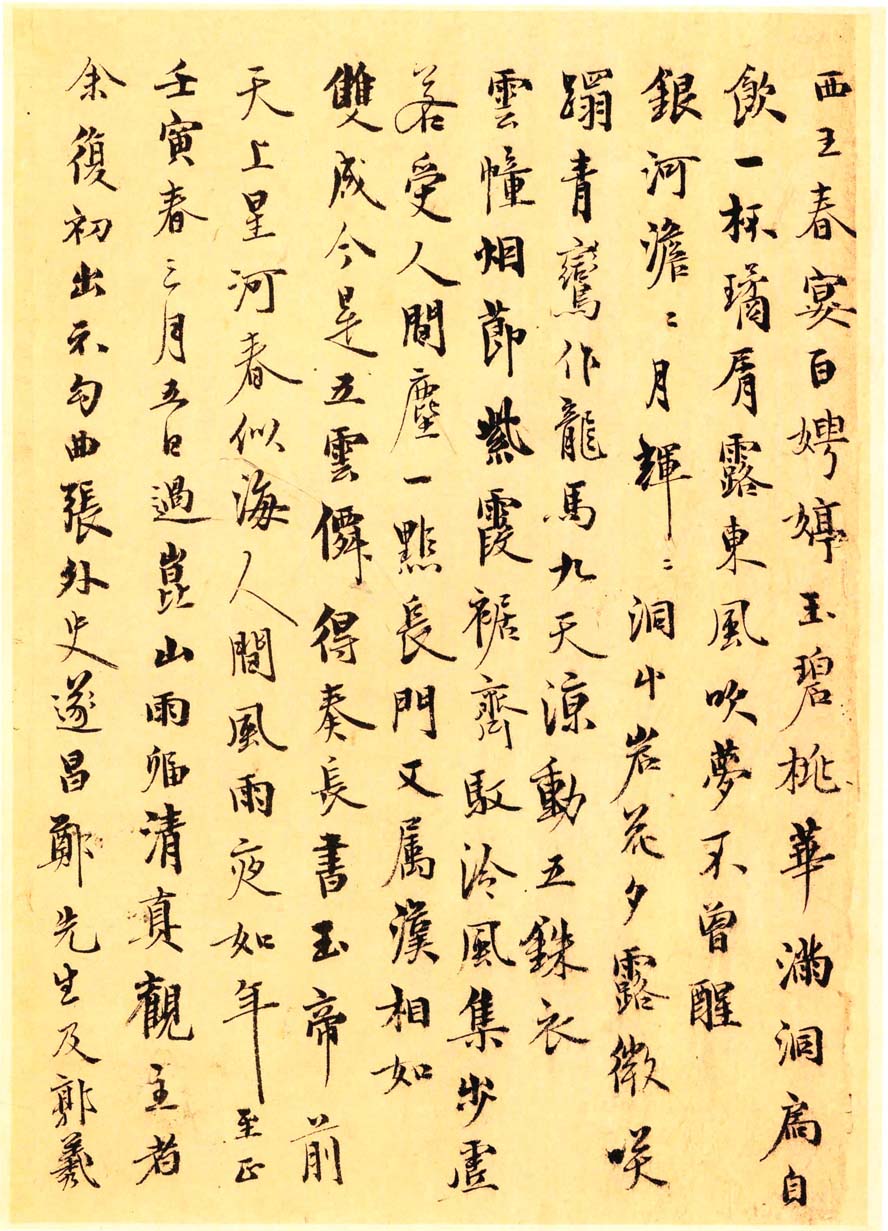 西王春宴百娉婷玉碧桃華滿洞扃自
飲一杯璚屑露東風吹夢不曾醒
銀河澹〻月輝〻洞口岩花夕露微咲
躡青鸞作龍馬九天涼動五銖衣
雲幢烟莭紫霞裾齊馭泠風集步虛
若受人間塵一點長門又属漢相如
雙成今是五雲僊得奏長書玉帝前
天上星河春似海人間風雨夜如年至正
壬寅春三月五日過崑山雨宿清真觀主者
余復初出示句曲張外史遂昌鄭先生及郭羲